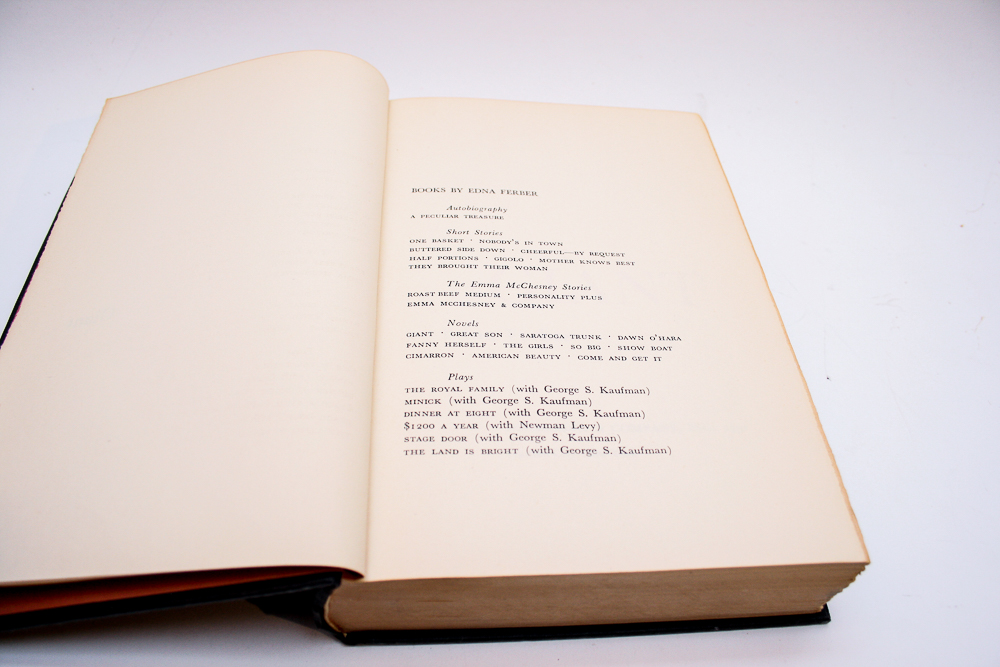 BOOKS BY EDNA FERBER
Autobiography
A PECULIAR TREASURE
Short Stories
ONE BASKET · NOBODY'S IN TOWN
BUTTERED SIDE DOWN · CHEERFUL—BY REQUEST
HALF PORTIONS · GIGOLO · MOTHER KNOWS BEST
THEY BROUGHT THEIR WOMAN
The Emma McChesney Stories
ROAST BEEF MEDIUM · PERSONALITY PLUS
EMMA MCCHESNEY & COMPANY
Novels
GIANT · GREAT SON · SARATOGA TRUNK · DAWN O'HARA
FANNY HERSELF · THE GIRLS · SO BIG · SHOW BOAT
CIMARRON · AMERICAN BEAUTY · COME AND GET IT
Plays
THE ROYAL FAMILY (with George S. Kaufman)
MINICK (with George S. Kaufman)
DINNER AT EIGHT (with George S. Kaufman)
$1200 A YEAR (with Newman Levy)
STAGE DOOR (with George S. Kaufman)
THE LAND IS BRIGHT (with George S. Kaufman)